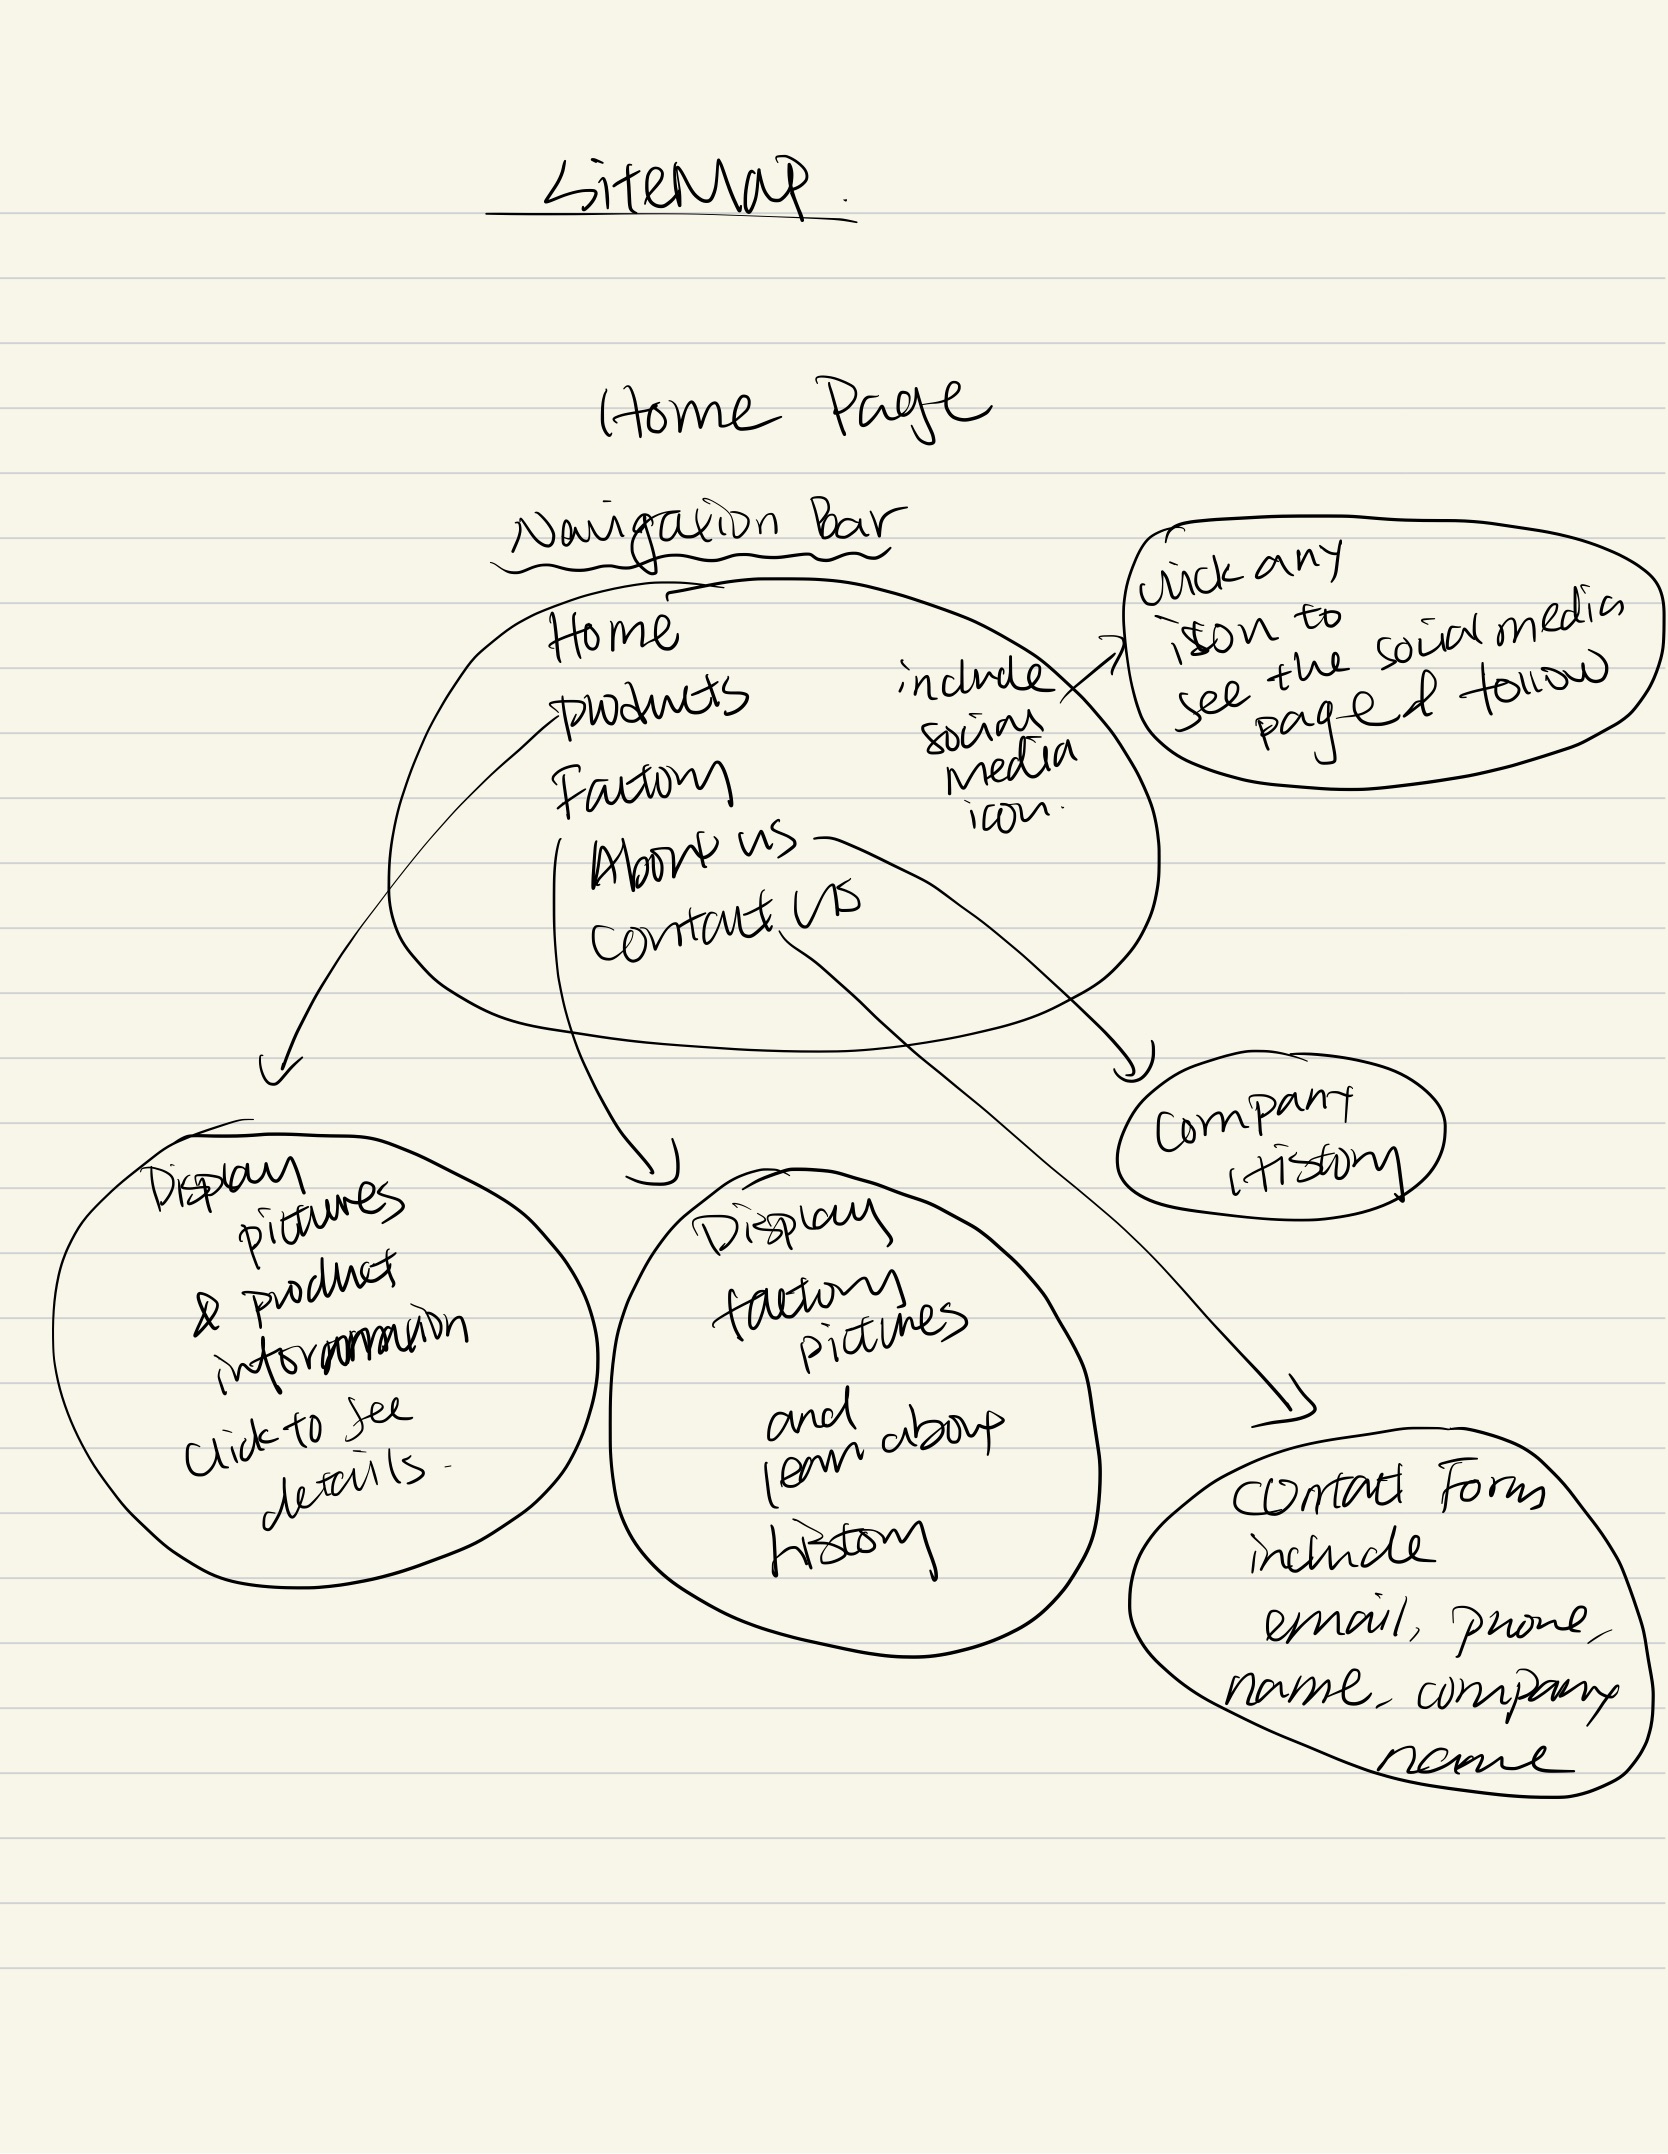 SiteMap.
Home Page
Navigation Bar
Home
products
Factory
About us
Contact Us
include
social
media
icon.
click any
ison to
see the social media
page & follow
Company
History
Display
pictures
& product
information
click to see
details.
Display
factory
pictures
and
learn about
history
Contact Form
include
email, phone,
name, company
name